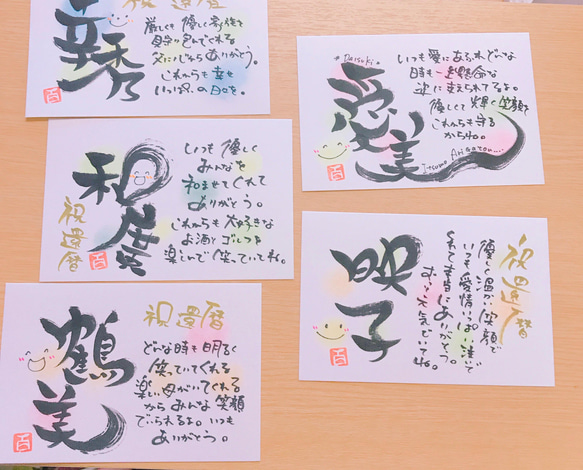 祝還暦
幸秀
厳しくも優しく家族を
見守り包んでくれる
父にいつもありがとう。
これからも幸せ
いっぱいの日々を。
Daisuki
いつも愛にあふれどんな
時も一生懸命な
姿に支えられてるよ。
優しくて輝く笑顔を
これからも守る
からね。
愛美
Itsumo Arigatou....
和廣
祝還暦
いつも優しく
みんなを
和ませてくれて
ありがとう。
これからも大好きな
お酒とゴルフを
楽しんで笑っていてね。
祝還暦
映子
優しく温かい笑顔で
いつも愛情いっぱい注いで
くれて本当にありがとう。
ずっと元気でいてね。
鶴美
祝還暦
どんな時も明るく
笑っていてくれる
楽しい母がいてくれる
からみんな笑顔
でいられるよ。いつも
ありがとう。